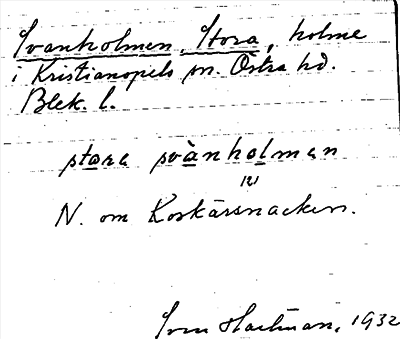 Svanholmen, Stora, holme
i Kristianopels sn. Östra hd.
Blek. l.
stora svànholman
N. om Korkärsnacken.
Sven Hartman, 1932